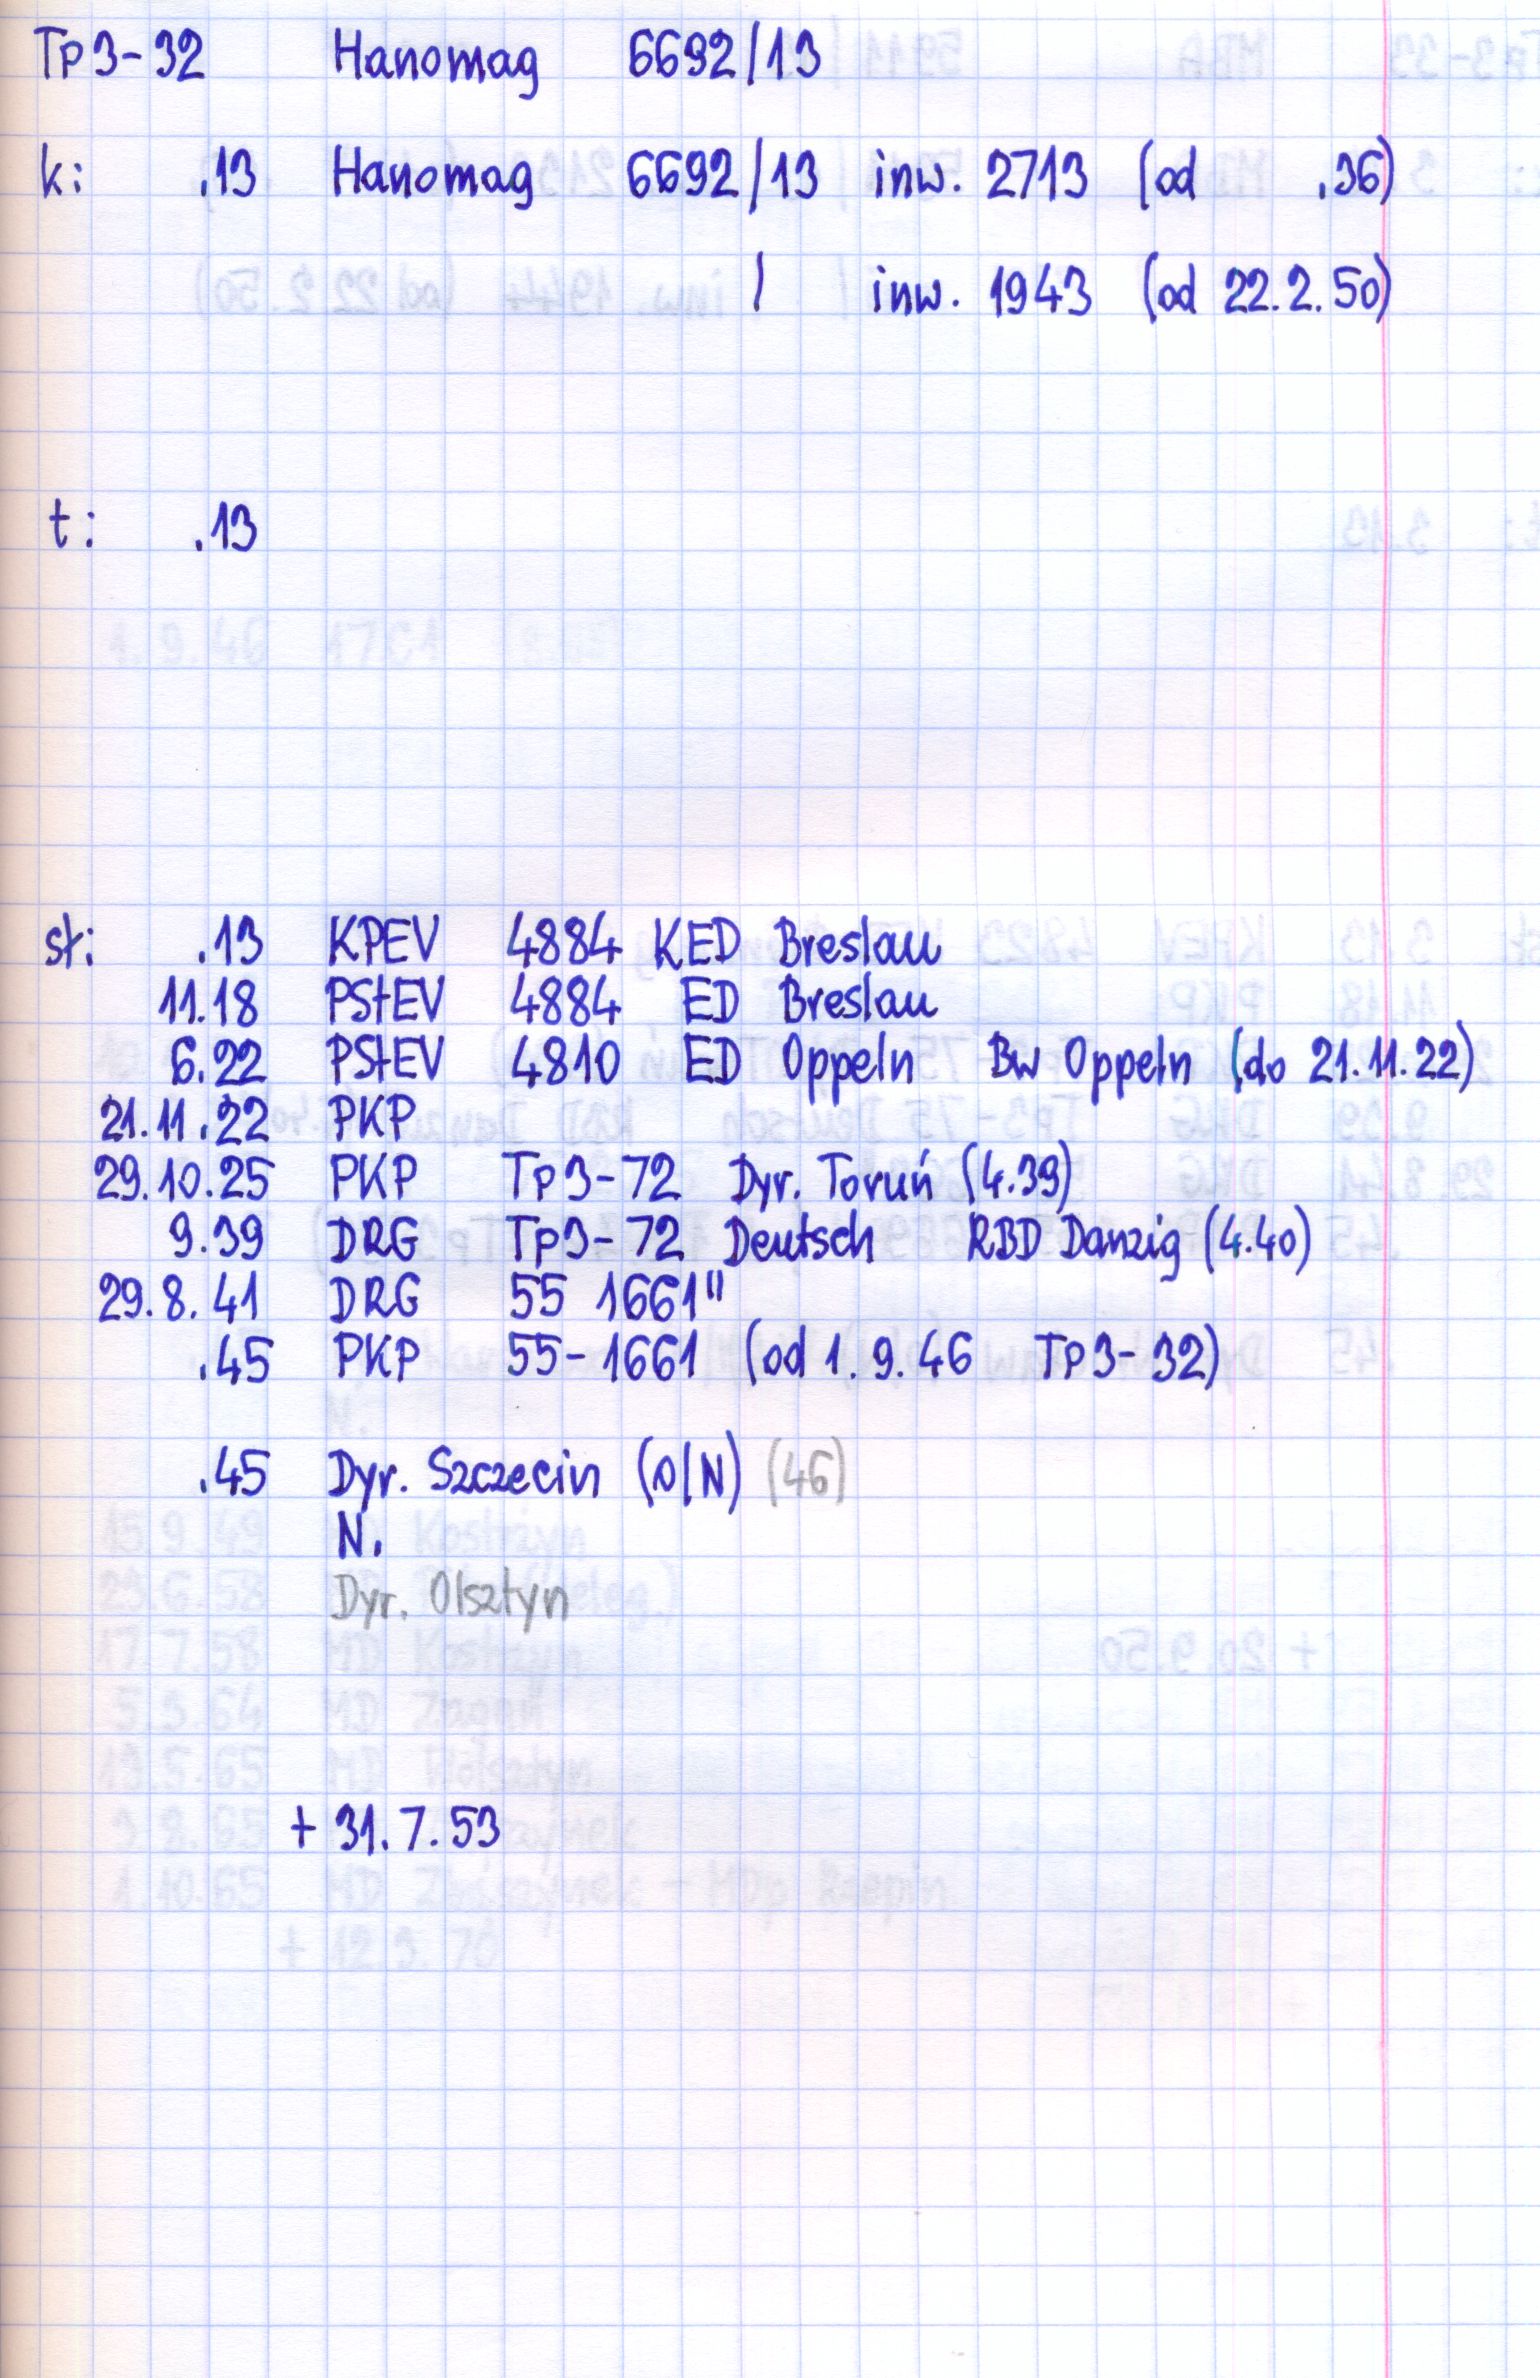 Tp3-32 Hanomag 6692/13
k: .13 Hanomag 6692/13 inw. 2713 (od .36)
/ inw. 1943 (od 22.2.50)
t: .13
st: .13 KPEV 4884 KED Breslau
11.18 PStEV 4884 ED Breslau
6.22 PStEV 4810 ED Oppeln Bw Oppeln (do 21.11.22)
21.11.22 PKP
29.10.25 PKP Tp3-72 Dyr. Toruń (4.39)
9.39 DRG Tp3-72 Deutsch RBD Danzig (4.40)
29.8.41 DRG 55 1661"
.45 PKP 55-1661 (od 1.9.46 Tp3-32)
.45 Dyr. Szczecin (O/N) (46)
N.
Dyr. Olsztyn
+ 31.7.53